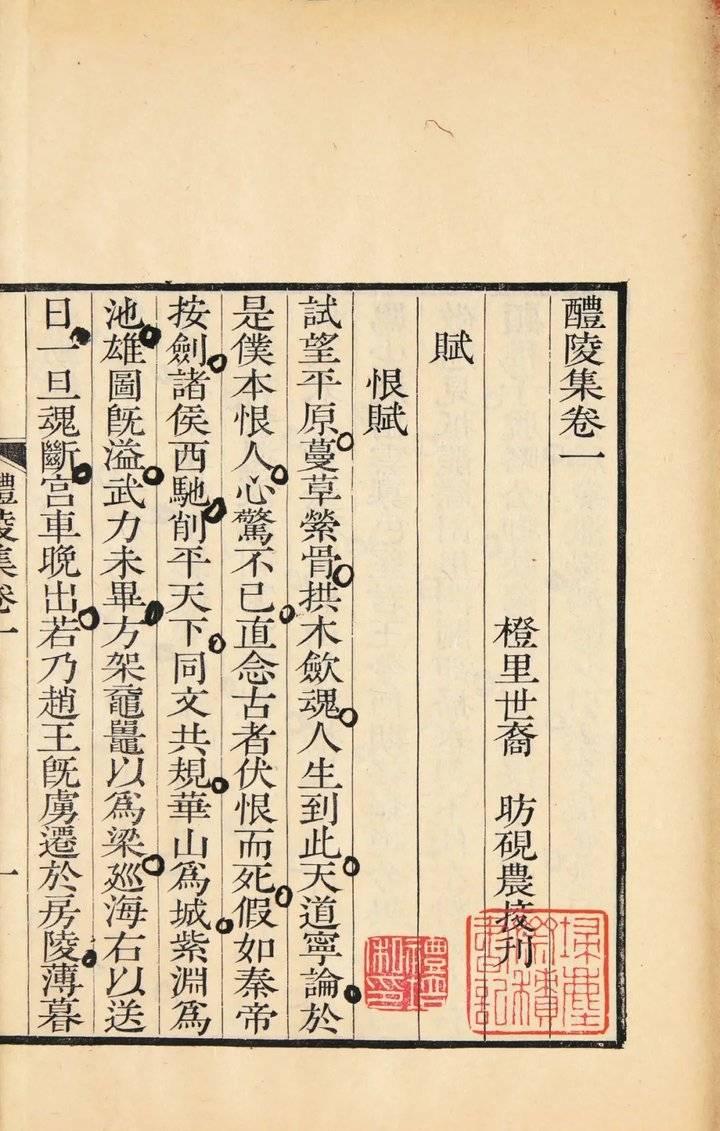 醴陵集卷一
橙里世裔　昉硯農挍刋
賦
恨賦
試望平原蔓草縈骨拱木斂魂人生到此天道寧論於
是僕本恨人心驚不已直念古者伏恨而死假如秦帝
按劍諸侯西馳削平天下同文共規華山爲城紫淵爲
池雄圖旣溢武力未畢方架黿鼉以爲梁廵海右以送
日一旦魂斷宮車晚出若乃趙王旣虜遷於房陵薄暮
醴陵集卷一
一